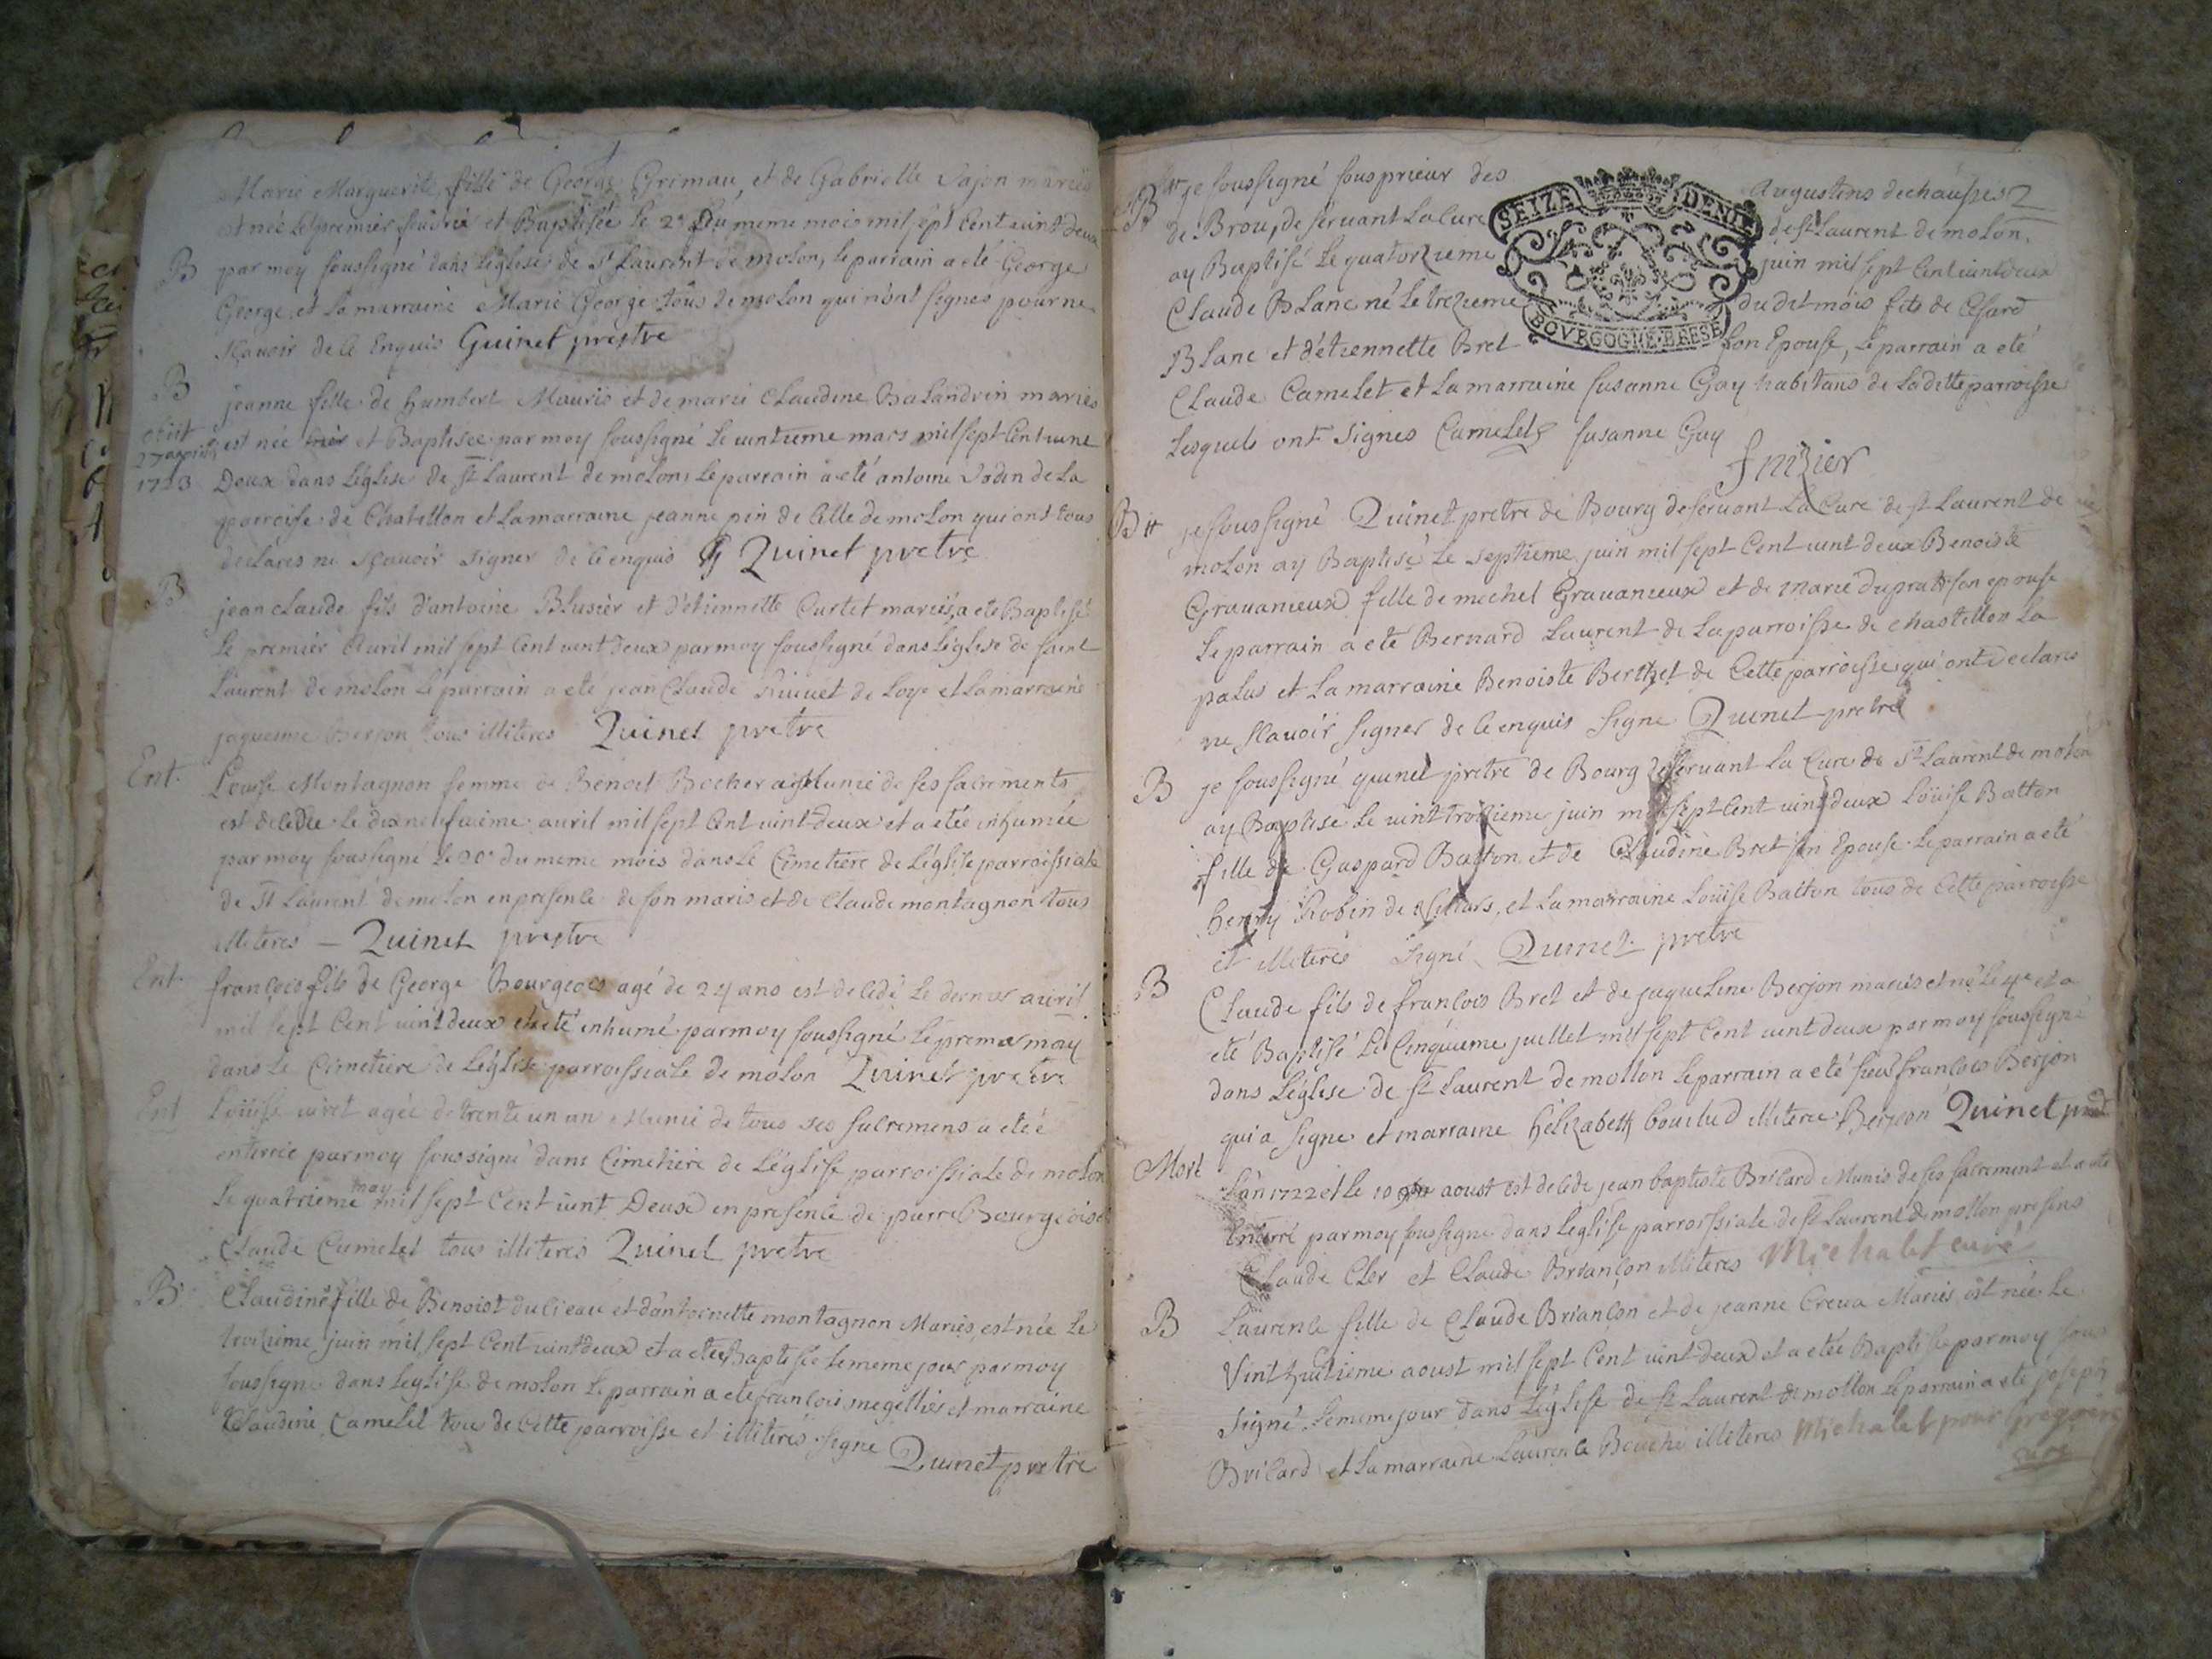 Marie Marguerite fille de George Grimau, et de Gabrielle Sajon mariés
est née le premier feuvrié et Baptisée le 2e du meme mois mil sept Cent vint deux
B par moy soussigné dans l'eglise de St Laurent de molon, le parrain a eté George
George, et la marraine Marie George tous de molon qui n'ont signés pour ne
sçauoir de ce Enquis Quinet prestre
B jeanne fille de humbert Mauris et de marie Claudine Balandrin mariés
est née et Baptisée par moy soussigné le vintieme mars mil sept Cent vint
1723 Deux dans l'eglise de St Laurent de molon, le parrain a eté antoine Jodin de La
parroisse de Chatillon et la marraine jeanne pin de Celle de molon qui ont tous
declarés ne sçauoir signer de ce enquis Quinet pretre
B jean claude fils d'antoine Blusier et d'etiennette Curtet mariés, a eté Baptisé
le premier auril mil sept Cent vint deux par moy soussigné dans l'eglise de saint
Laurent de molon le parrain a eté jean Claude de Loye et la marraine
jaquemie Berjon tous illiteres Quinet pretre
Ent. Louise Montagnon femme de Benoit Bocher Munie de ses sacrements
est decedée le dixneufuieme auril mil sept Cent vint deux et a eteé inhumée
par moy soussigné le 20e du meme mois dans le Cimetiere de l'eglise parroissiale
de St Laurent de molon en presence de son maris et de Claude montagnon tous
illiteres — Quinet prestre
Ent. françois fils de George Bourgeois agé de 24 ans est decedé le dernier auril
mil sept Cent vint deux et eté inhumé par moy soussigné le premier may
dans le Cimetiere de l'eglise parroissiale de molon Quinet pretre
Ent Loüise viret agée de trente un an Munie de tous ses sacremens a eteé
enterrée par moy soussigné dans Cimetiere de l'eglise parroissiale de molon
le quatrieme may mil sept Cent vint Deux en presence de pierre Bourgeois et
Claude Camelet tous illiteres Quinet pretre
B Claudine fille de Benoist dulieau et d'antoinette montagnon Mariés, est née le
troisieme juin mil sept Cent vint deux et a eteé Baptisée le meme jour par moy
soussigné dans l'eglise de molon le parrain a eté francois megellier et marraine
Claudine Camelet tous de Cette parroisse et illiterés signe
Quinet pretre
B je soussigné sousprieur des Augustins dechaussés
de Brou, deseruant la Cure de St Laurent de molon,
ay Baptisé le quatorzieme juin mil sept Cent vint deux
Claude Blanc né le trezieme du dit mois fils de Cesard
Blanc et d'etiennette Bret son Epouse, le parrain a eté
SEIZE DENIE
BOVRGOGNE BRESE
Claude Camelet et la marraine susanne Gay habitans de laditte parroisse
lesquels ont signes Camelet susanne Guy
B je soussigné Quinet pretre de Bourg deseruant La Cure de St Laurent de
molon ay Baptisé le septieme juin mil sept Cent vint deux Benoiste
Grauanieux fille de michel Grauanieux et de marie dupras son epouse
le parrain a eté Bernard Laurent de la parroisse de chastillon la
palus et la marraine Benoiste Berthet de Cette parroisse qui ont declarés
ne sçauoir signer de ce enquis signe Quinet pretre
B je soussigné quinet pretre de Bourg deseruant la Cure de St Laurent de molon
ay Baptisé le vint troisieme juin mil sept Cent vint deux Loüise Batton
fille de Gaspard Batton et de Claudine Bret son Epouse le parrain a eté
henry Robin de et la marraine Loüise Batton tous de Cette parroisse
et illiterés signé Quinet pretre
B Claude fils de francois Bret et de jaqueline Berjon mariés et né le 4e et a
eté Baptisé le Cinquieme juillet mil sept Cent vint deux par moy soussigné
dans l'eglise de St Laurent de mollon le parrain a eté sieur francois Berjon
qui a signe et marraine helizabeth bouilud illiteree Berjeon Quinet
Mort L'an 1722 et le 10 aoust est decedé jean baptiste Brilard Munis de ses sacrement et a eté
Enterré par moy soussigné dans l'eglise parroissiale de St Laurent de mollon presens
Claude Cler et Claude Briançon illiteres Michalet curé
B Laurence fille de Claude Briançon et de jeanne Creua Mariés est née le
Vint huitieme aoust mil sept Cent vint deux et a eteé Baptisée par moy sous
signé le meme jour dans l'eglise de St Laurent de mollon le parrain a eté joseph
Brilard et la marraine Laurence Bouché illiteres Michalet pour Gregoire
curé